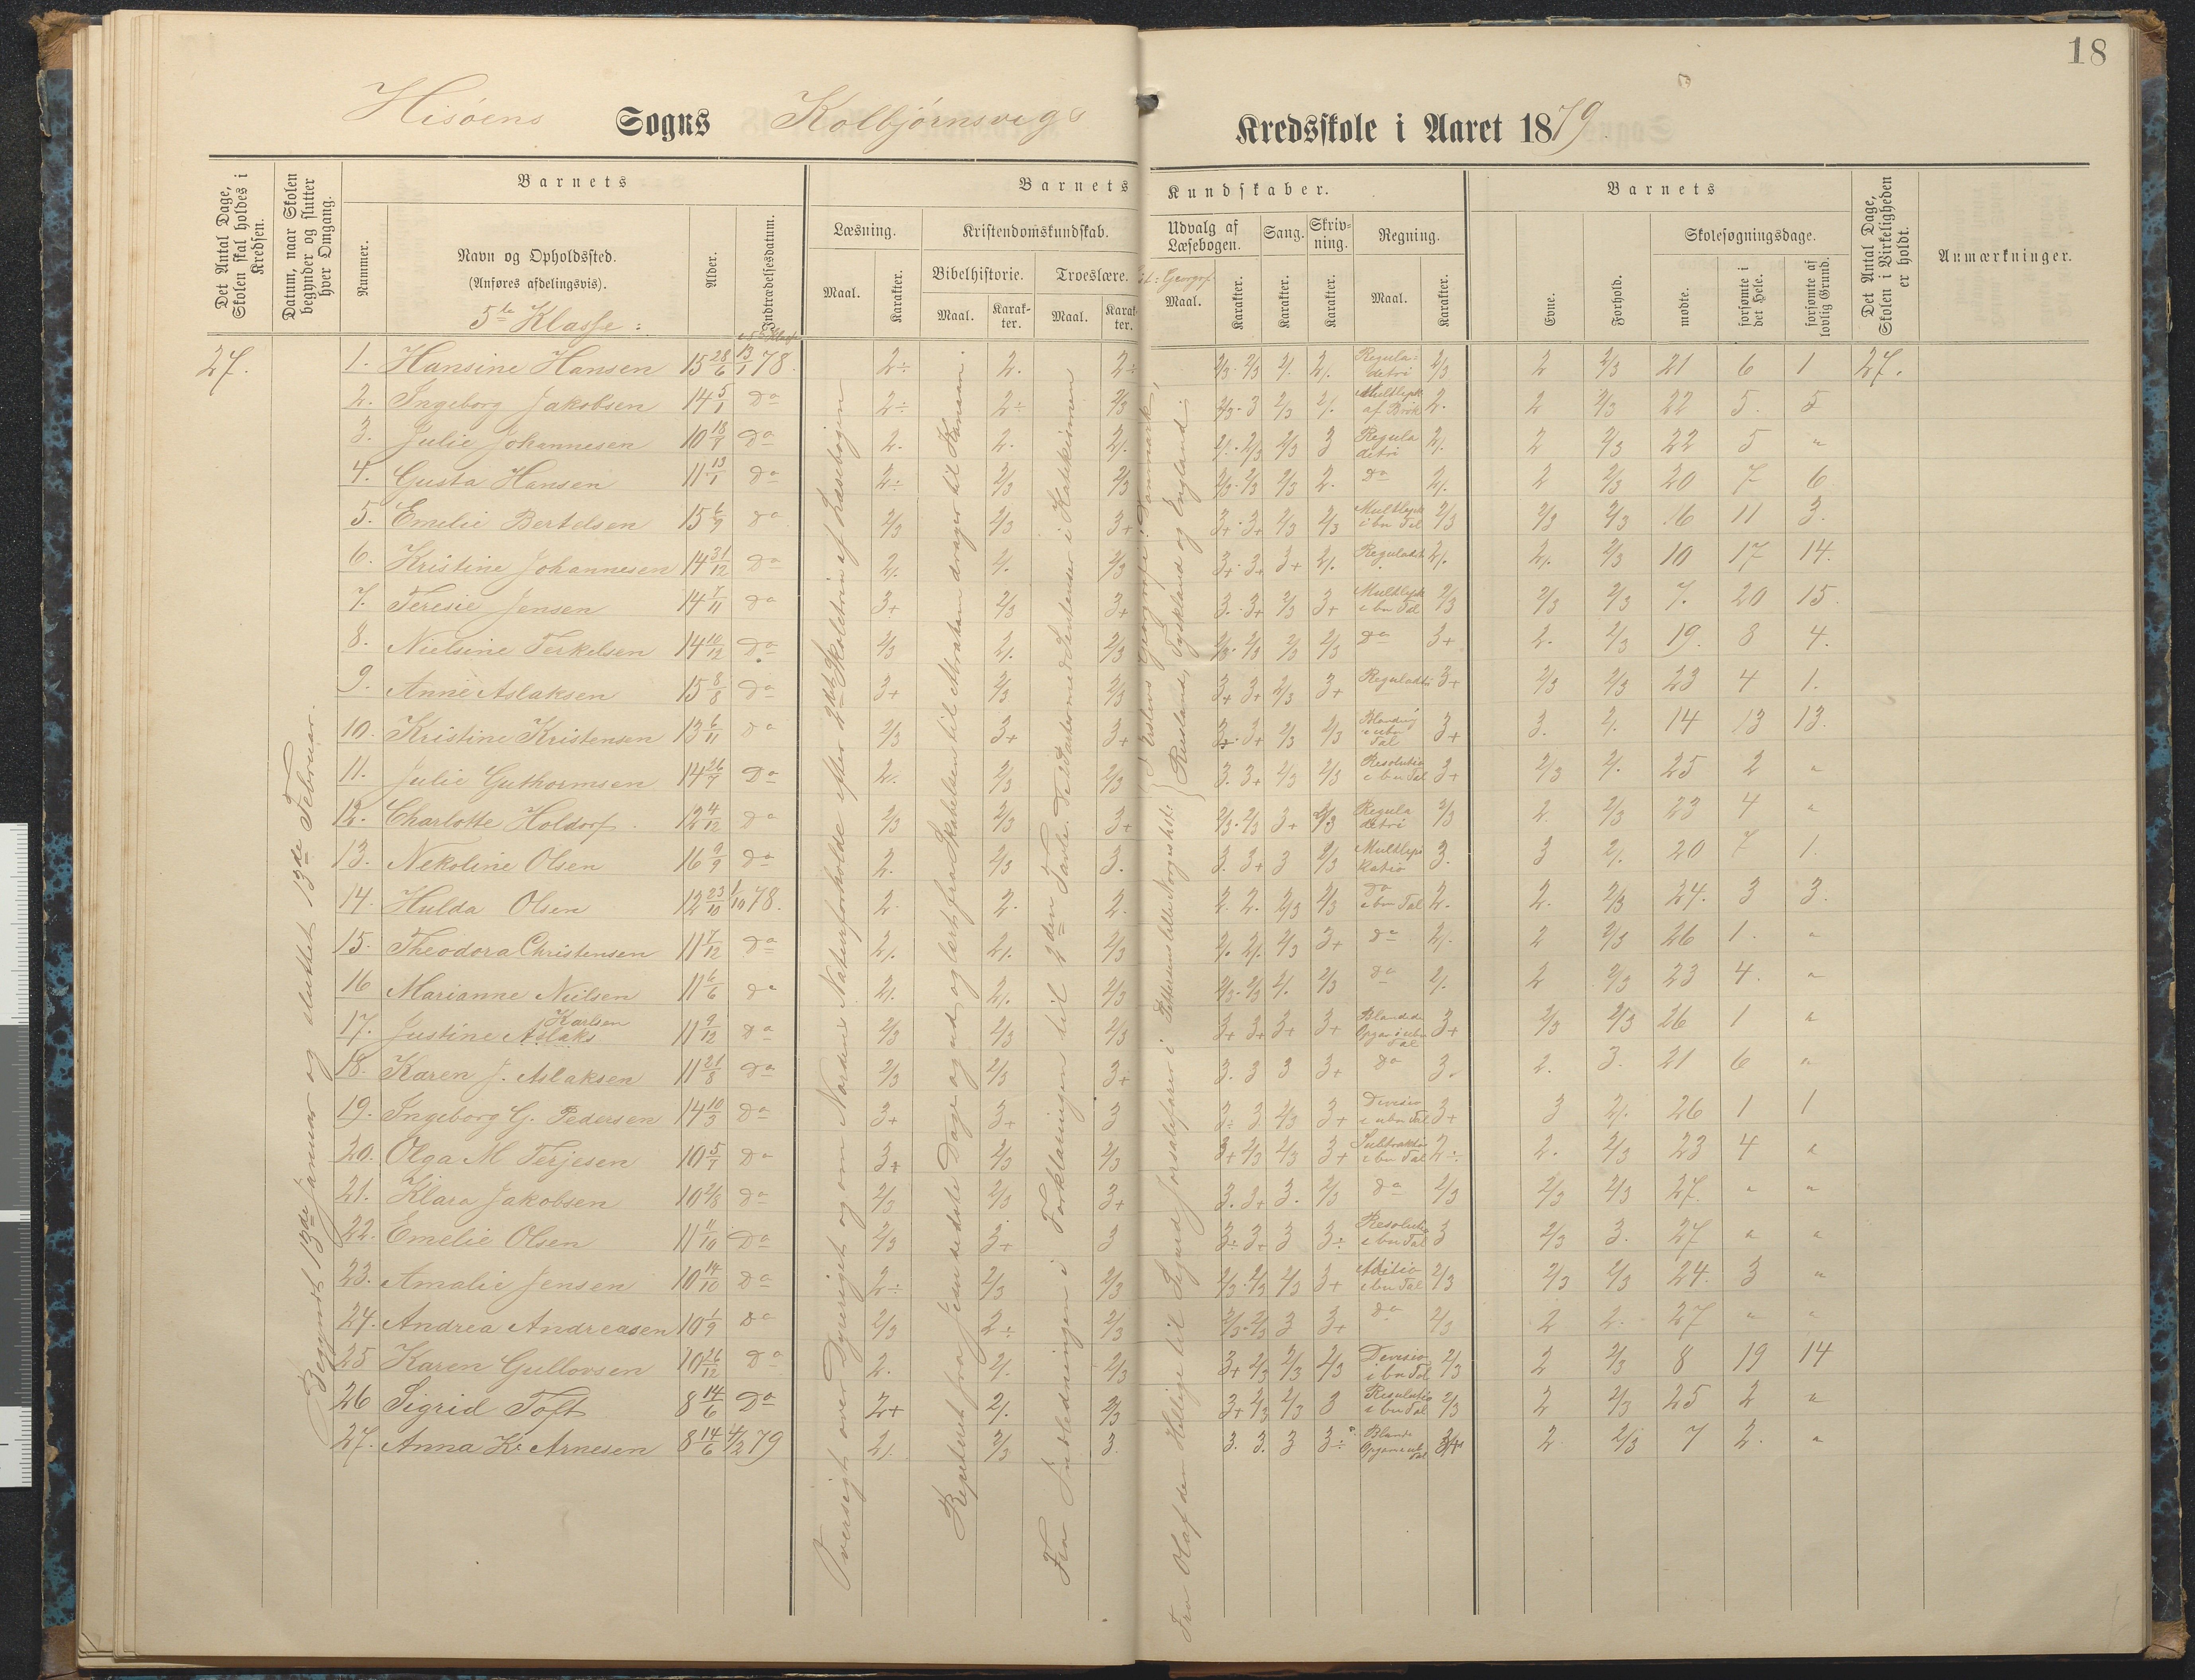 18
Hisøens Sogns Kolbjørnsvigs Kredsskole i Aaret 1879
Det Antal Dage, Skolen skal holdes i Kredsen.
Datum, naar Skolen begynder og slutter hver Omgang.
Barnets
Nummer.
Navn og Opholdssted.
(Anføres afdelingsvis).
5te Klasse:
Alder.
Indtrædelsesdatum.
Barnets Kundskaber.
Læsning.
Maal.
Karakter.
Kristendomskundskab.
Bibelhistorie.
Maal.
Karakter.
Troeslære.
Maal.
Karakter.
Udvalg af Læsebogen.
Maal.
Karakter.
Sang.
Karakter.
Skrivning.
Karakter.
Regning.
Maal.
Karakter.
Barnets
Evne.
Forhold.
Skolesøgningsdage.
mødte.
forsømte i det Hele.
forsømte af lovlig Grund.
Det Antal Dage, Skolen i Virkeligheden er holdt.
Anmærkninger.
27.
Begyndt 13de Januar og sluttet 13de Februar.
Oversigt over Dyreriget og om Nordens Naturforholde efter 2det Skoletrin af Læsebogen
Repeteret fra Jesu sidste Dage og ud og lært fra Skabelsen til Abraham drager til Kanaan.
Fra Indledningen i Forklaringen til 2den Tavle. Fed Parter med Sentenser i Katekismen
Fra Olaf den Hellige til Sigurd Jorsalefarer i Pettersens lille Norgeshist:
i Erslevs Geografi: Danmark,
Rusland, Tyskland og England;
1. Hansine Hansen 15 28/6 13/1 78. 2÷ 2. 2÷ 2/3. 2/3 2/. 2/. Regula detri 2/3 2 2/3 21 6 1 27.
2. Ingeborg Jakobsen 14 5/1 Do 2÷ 2÷ 2/3 2/3. 3 2/3 2/. Multlipk af Brøk 2. 2 2/3 22 5. 5
3. Julie Johannesen 10 18/7 Do 2. 2. 2/. 2/. 2/3 2/3 3 Regula detri 2/. 2 2/3 22 5 "
4. Gusta Hansen 11 13/1 do 2÷ 2/3 2/3 2/3. 2/3 2/3 2. Do 2/. 2 2/3 20 7 6
5. Emelie Bertelsen 15 6/7 do 2/3 2/3 3+ 3+. 3+ 2/3 2/3 Multlipk i bn Tal 2/3 2/3 2/3 16 11 3.
6. Kristine Johannesen 14 31/12 Do 2/. 2/. 2/3 3+. 3+ 3+ 2/. Reguladetri 2/. 2/. 2/3 10 17 14.
7. Teresie Jensen 14 7/11 do 3+ 2/3 3+ 3. 3+ 2/3 3+ Multlipk i bn Tal 2/3 2/3 2/3 7. 20 15.
8. Nielsine Terkelsen 14 10/12 Do 2/3 2/. 2/3 2/3. 2/3 2/3 2/3 Do 3+ 2. 2/3 19. 8 4.
9. Anne Aslaksen 15 8/8 Do 3+ 2/3 2/3 3+ 3+ 2/3 3+ Reguladetri 3+ 2/3 2/3 23 4 1.
10. Kristine Kristensen 13 6/11 do 2/3 3+ 3+ 3÷. 3+ 2/3 2/3 Blanding i ubn Tal 3+ 3. 2/. 14 13 13.
11. Julie Guthormsen 14 26/7 Do 2. 2/3 2/3 3. 3+ 2/3 2/3 Resolutio i bn Tal 3+ 2/3 2/. 25 2 "
12. Charlotte Holdorf. 12 4/12 do 2/3 2/3 3+ 2/3. 2/3 3+ 2/3 Regula detri 2/3 2 2/3 23 4 "
13. Nekoline Olsen 16 9/9 do 2. 2/3 3. 3. 3+ 3 2/3 Multlipikatio 3. 3 2/. 20 7 1.
14. Hulda Olsen 12 23/10 1/10 78. 2. 2. 2. 2. 2. 2/3 2/3 Do i bn Tal 2. 2. 2/3 24. 3 3.
15. Theodora Christensen 11 7/12 do 2/. 2/. 2/3 2/. 2/. 2/3 3+ Do 2/. 2 2/3 26 1. "
16 Marianne Nielsen 11 6/6 do 2/. 2/. 2/3 2/3. 2/3 2/. 2/3 do 2/. 2 2/3 23 4. "
17. Justine Aslaks Karlsen 11 9/12 do 2/3 2/3 2/3 3+ 3+ 3+ 3+ Blandede Opgav i ubn Tal 3+ 2/3 2/3 26 1 "
18. Karen J. Aslaksen 11 21/8 do 2/3 2/3 3+ 3. 3 3 3+ do 3. 2. 3. 21 6 "
19. Ingeborg G. Pedersen 14 10/3 Do 3+ 3+ 3 3÷ 3 2/3 3+ Devisio i ubn Tal 3+ 3 2/. 26 1 1
20. Olga M Terjesen 10 5/7 Do 3+ 2/3 2/3 3+ 2/3 2/3 3+ Subtraktio i bn Tal 2÷ 2. 2/3 23 4 "
21. Klara Jakobsen 10 2/8 do 2/3 2/3 3+ 3. 3+ 3. 2/3 do 2/3 2/3 2/3 27. " "
22. Emelie Olsen 11 11/10 Do 2/3 3+ 3 3÷ 3+ 3 3÷ Resolutio i bn Tal 3 2/3 3. 27 " "
23. Amalie Jensen 10 14/10 Do 2÷ 2/3 2/3 2/3. 2/3 2/3 3+ Aditio i bn Tal 2/3 2/3 2/3 24. 3 "
24. Andrea Andreasen 10 1/9 do 2/3 2÷ 2/3 2/3. 2/3 3 3+ do 2/3 2 2. 27 " "
25 Karen Gullovsen 10 26/12 Do 2. 2/. 2/3 3+ 2/3 2/3 2/3 Devisio i bn Tal 2/3 2 2/3 8 19 14
26 Sigrid Toft 8 14/6 Do 2+ 2/. 2/3 3+ 2/3 2/3 3 Resolutio i bn Tal 2/3 2 2/3 25 2 "
27. Anna K. Arnesen 8 14/6 4/2 79 2/. 2/3 3. 3. 3. 3 3÷ Bland Opgav i ubn Tal 3+ 2 2/3 7 2. "